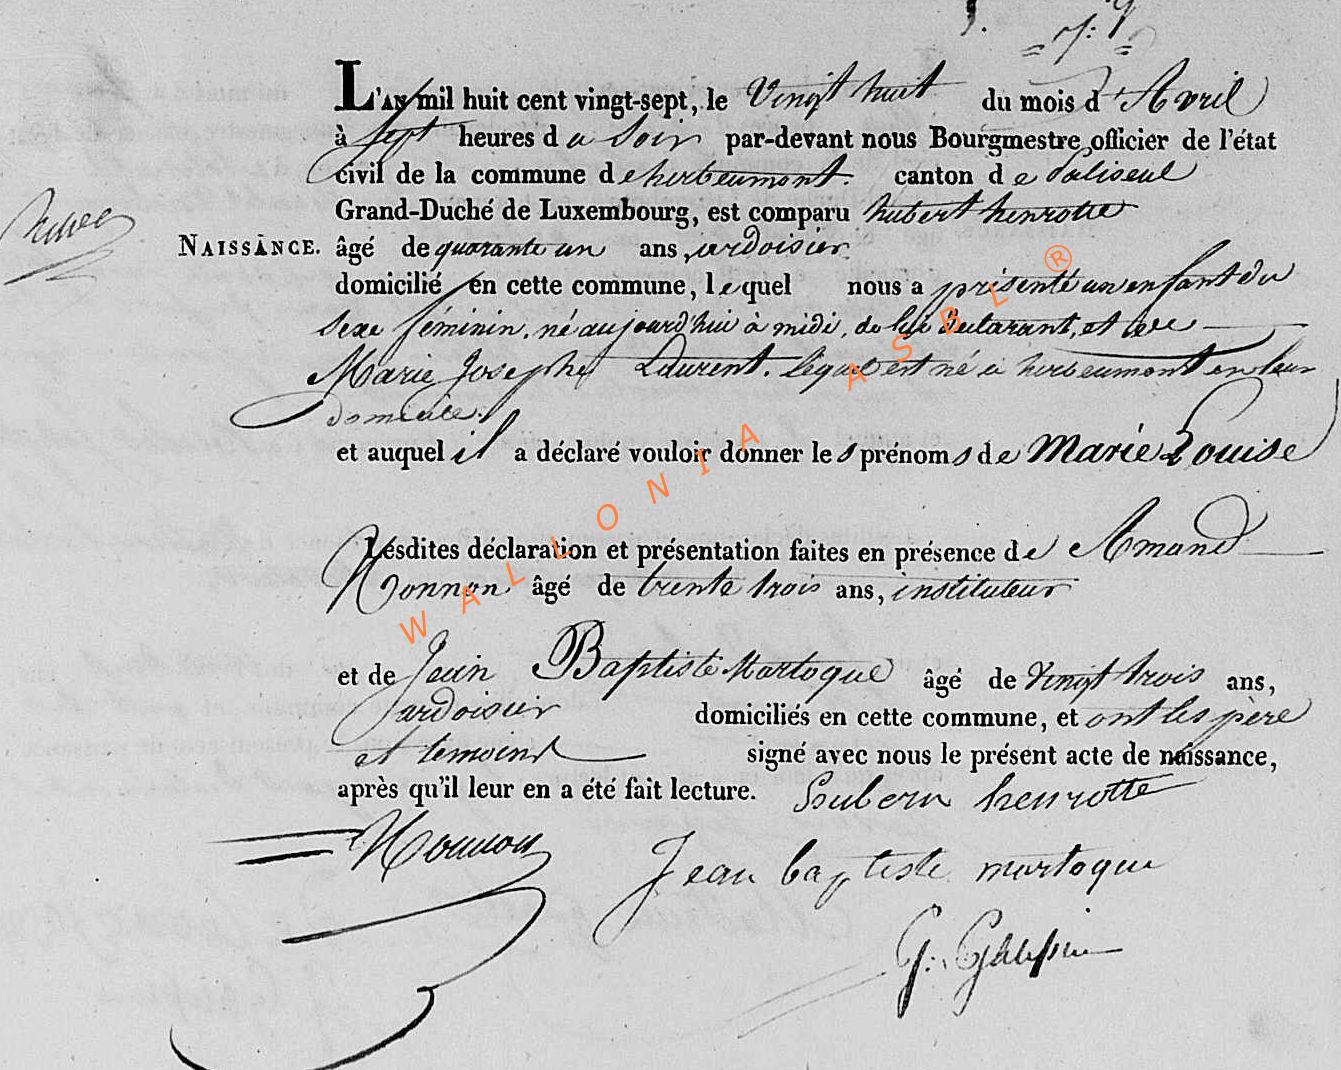 = 7: 9 =
L'AN mil huit cent vingt-sept, le Vingt huit du mois d'Avril
à sept heures du soir par-devant nous Bourgmestre, officier de l'état
civil de la commune de herbeumont. canton de paliseul
Grand-Duché de Luxembourg, est comparu hubert henrotte
NAISSANCE. âgé de quarante un ans, ardoisier.
domicilié en cette commune, lequel nous a présenté un enfant du
sexe féminin, né aujourd'hui à midi, de lui déclarant, et de
Marie Josephe Laurent. lequel est né à herbeumont en leur
domicile.
et auquel il a déclaré vouloir donner les prénoms de Marie Louise
Lesdites déclaration et présentation faites en présence de Amand
Nonnon âgé de trente trois ans, instituteur
et de Jean Baptiste Martoque âgé de vingt trois ans,
ardoisier domiciliés en cette commune, et ont les père
et temoins signé avec nous le présent acte de naissance,
après qu'il leur en a été fait lecture. hubert henrotte
Nonnon
Jean baptiste martoque
WALLONIA ASBL ®